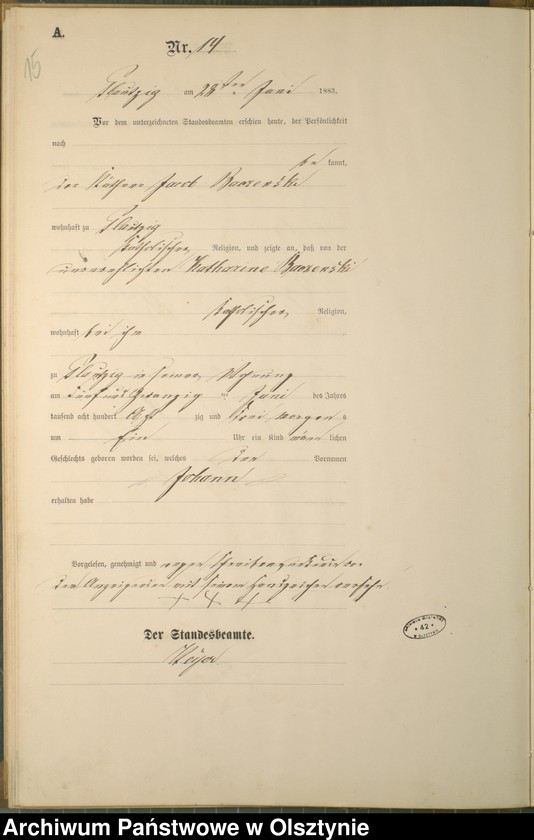 A.
15
Nr. 14
am 28ten Juni 1883.
Vor dem unterzeichneten Standesbeamten erschien heute, der Persönlichkeit
nach
bekannt,
der Käthner Jacob
wohnhaft zu
katholischer Religion, und zeigte an, daß von der
unverehelichten Katharina
katholischer Religion,
wohnhaft bei ihm
zu in seiner Wohnung
am fünf und zwanzigten Juni des Jahres
tausend acht hundert achtzig und drei Morgens
um Ein Uhr ein Kind männlichen
Geschlechts geboren worden sei, welches den Vornamen
Johann
erhalten habe
Vorgelesen, genehmigt und wegen
dem Anzeigenden mit seinem Handzeichen versehen
+ + +
Der Standesbeamte.
42
Archiwum Państwowe w Olsztynie